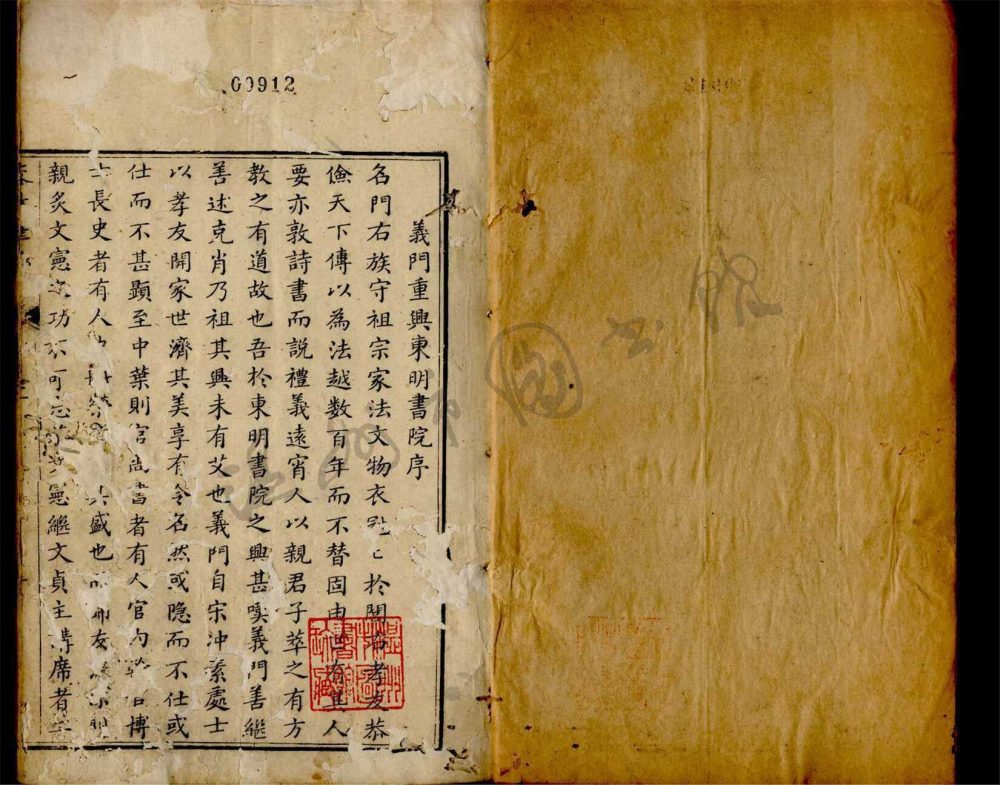 00912
義門重興東明書院序
名門右族守祖宗家法文物衣於關孝友恭
儉天下傳以為法越数百年而不替固由世有其人
要亦敦詩書而說禮義遠宵人以親君子萃之有方
教之有道故也吾於東明書院之興甚嘆義門善繼
善述克肖乃祖其興未有艾也義門自宋冲素處士
以孝友開家世濟其美享有令名然或隐而不仕或
仕而不甚顯至中葉則官尚書者有人官内博
士長史者有人盛也師友
親炙文憲之功不可忘憲繼文貞主講席者
温州市圖書館